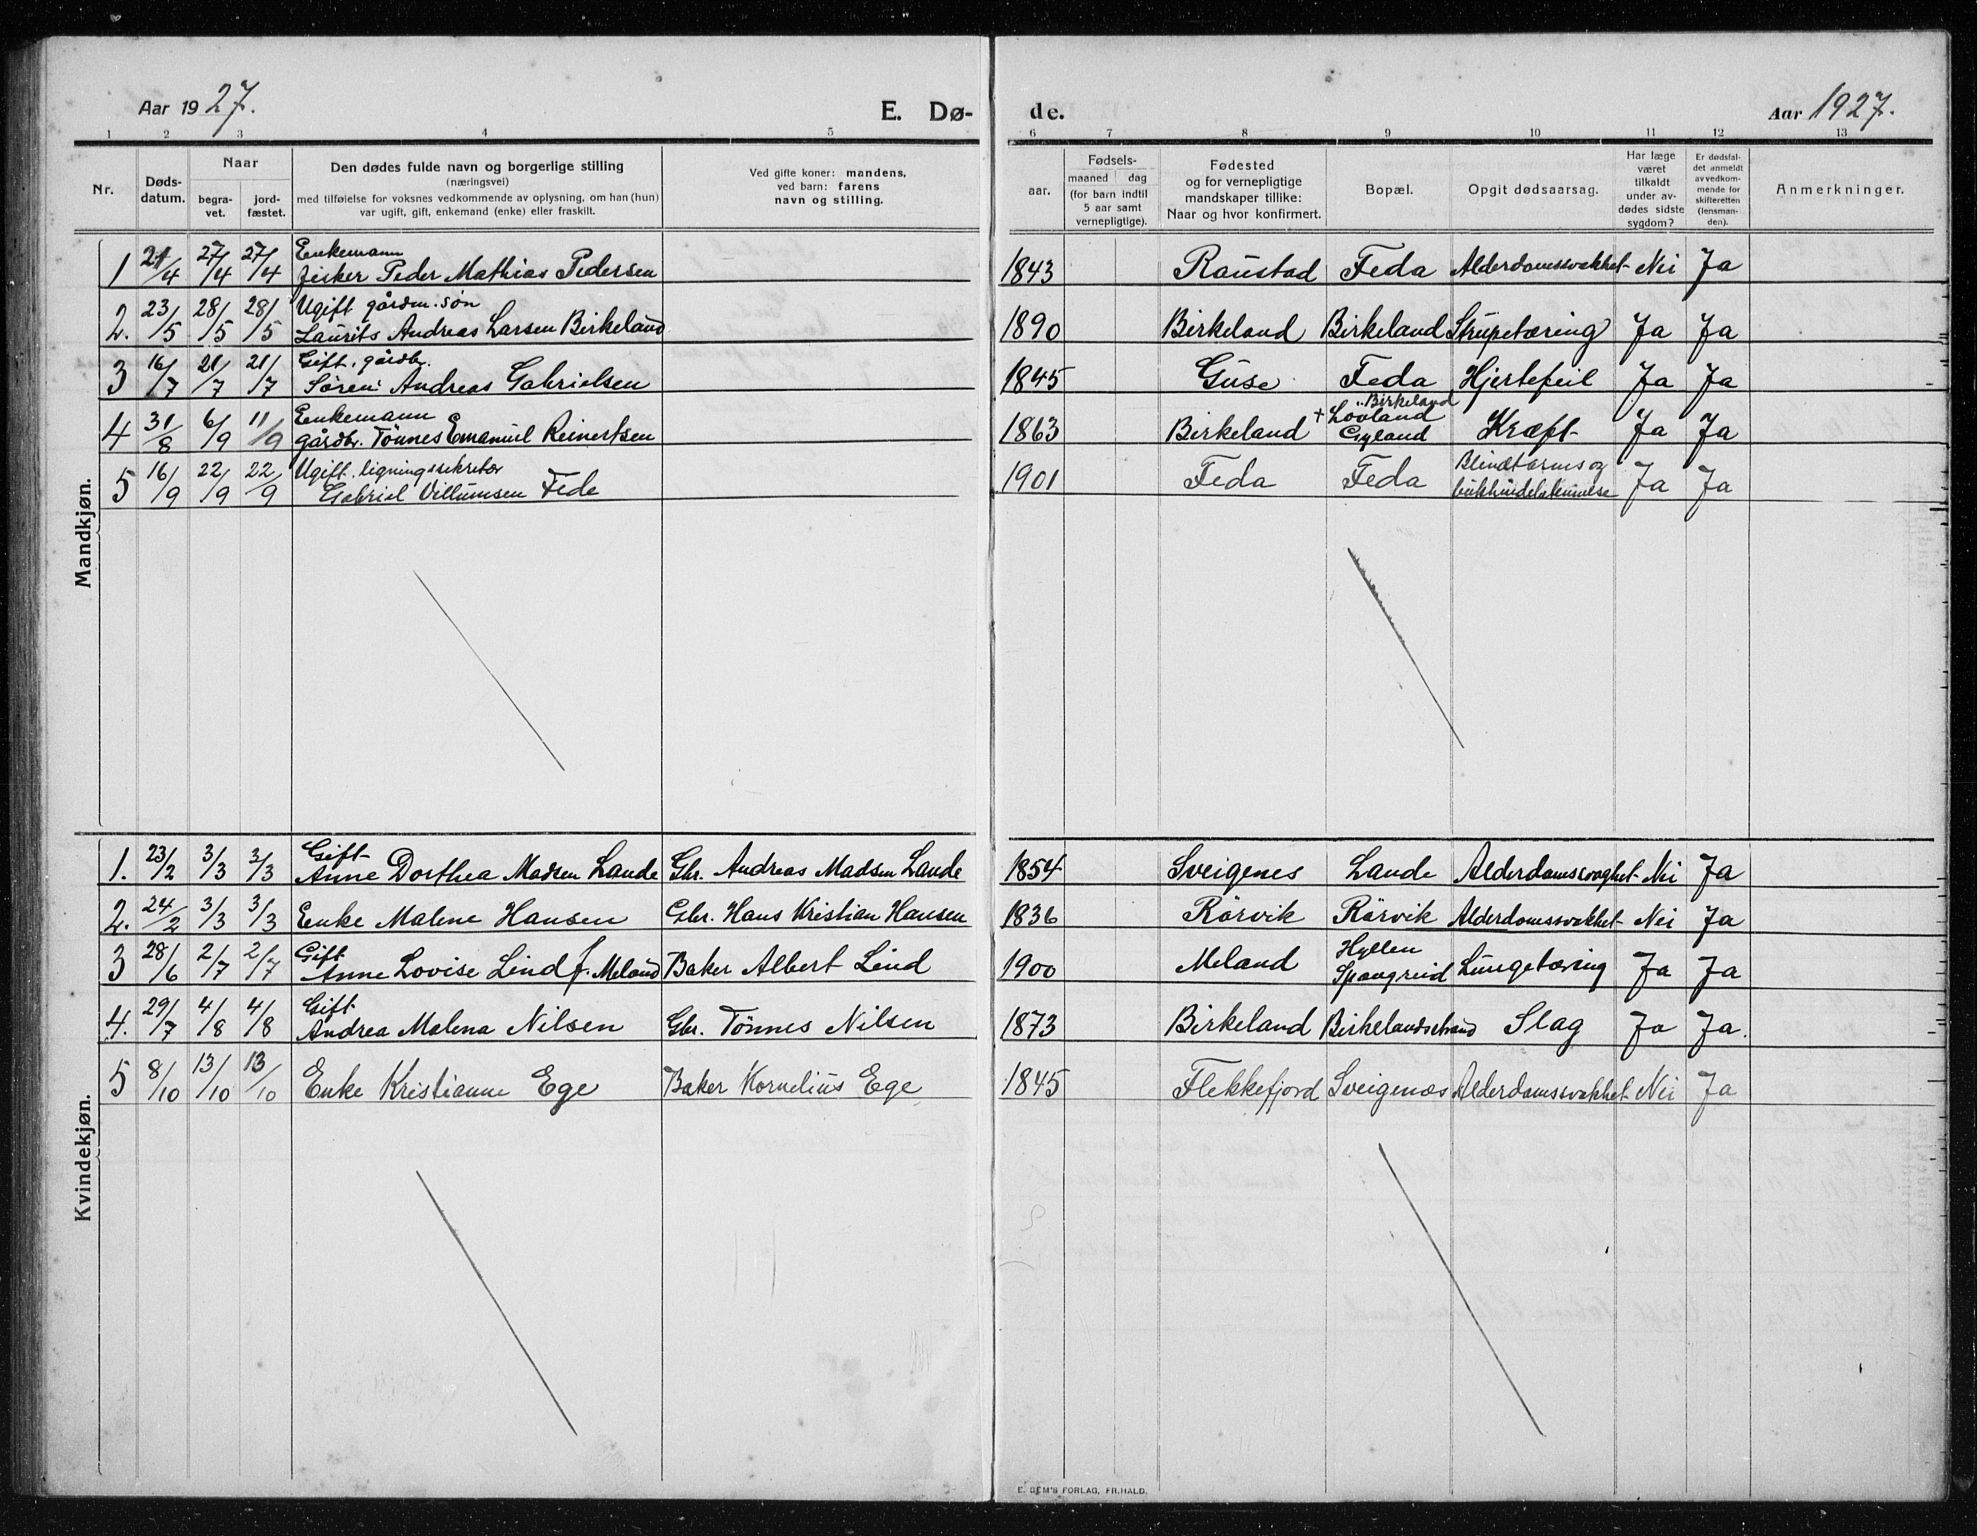 Aar 1927. E. Dø- de. Aar 1927.
1 2 3 4 5 6 7 8 9 10 11 12 13
Nr.
Døds-
datum.
Naar
begra-
vet.
jord-
fæstet.
Den dødes fulde navn og borgerlige stilling
(næringsvei)
med tilføielse for voksnes vedkommende av oplysning, om han (hun)
var ugift, gift, enkemand (enke) eller fraskilt.
Ved gifte koner: mandens,
ved barn: farens
navn og stilling.
aar.
Fødsels-
maaned dag
(for barn indtil
5 aar samt
vernepligtige).
Fødested
og for vernepligtige
mandskaper tillike:
Naar og hvor konfirmert.
Bopæl.
Opgit dødsaarsag.
Har læge
været
tilkaldt
under av-
dødes sidste
sygdom?
Er dødsfal-
det anmeldt
av vedkom-
mende for
skifteretten
(lensman-
den).
Anmerkninger.
Mandkjøn.
Enkemann
1 21/4 27/4 27/4 Fisker Peder Mathias Pedersen 1843 Raustad Feda Alderdomssvakhet Nei Ja
Ugift gårdm. søn
2. 23/5 28/5 28/5 Laurits Andreas Larsen Birkeland 1890 Birkeland Birkeland Strupetæring Ja Ja
Gift, gårdbr.
3 16/7 21/7 21/7 Søren Andreas Gabrielsen 1845 Guse Feda Hjertefeil Ja Ja
Enkemann Birkeland
4 31/8 6/9 11/9 gårdbr. Tönnes Emanuel Reinertsen 1863 Birkeland + Lovland Gyland Kræft Ja Ja
Ugift, ligningssekretær Blindtarms og
5 16/9 22/9 22/9 Gabriel Villumsen Fede 1901 Feda Feda Ja Ja
Kvindekjøn.
Gift
1. 23/2 3/3 3/3 Anne Dorthea Madsen Lande Gbr. Andreas Madsen Lande 1854 Sveigenes Lande Alderdomssvaghet Nei Ja
2. 24/2 3/3 3/3 Enke Malene Hansen Gbr. Hans Kristian Hansen 1836 Rörvik Rörvik Alderdomssvakhet Nei Ja
Gift Hyllen
3 28/6 2/7 2/7 Anne Lovise Lind f. Meland Baker Albert Lind 1900 Meland Spangreid Lungetæring Ja Ja
Gift
4. 29/7 4/8 4/8 Andrea Malena Nilsen Gbr. Tönnes Nilsen 1873 Birkeland Birkelandstrand Slag Ja Ja.
5 8/10 13/10 13/10 Enke Kristianne Ege Baker Kornelius Ege 1845 Flekkefjord Sveigenæs Alderdomssvakhet Nei Ja
E. SEM'S FORLAG, FR.HALD.